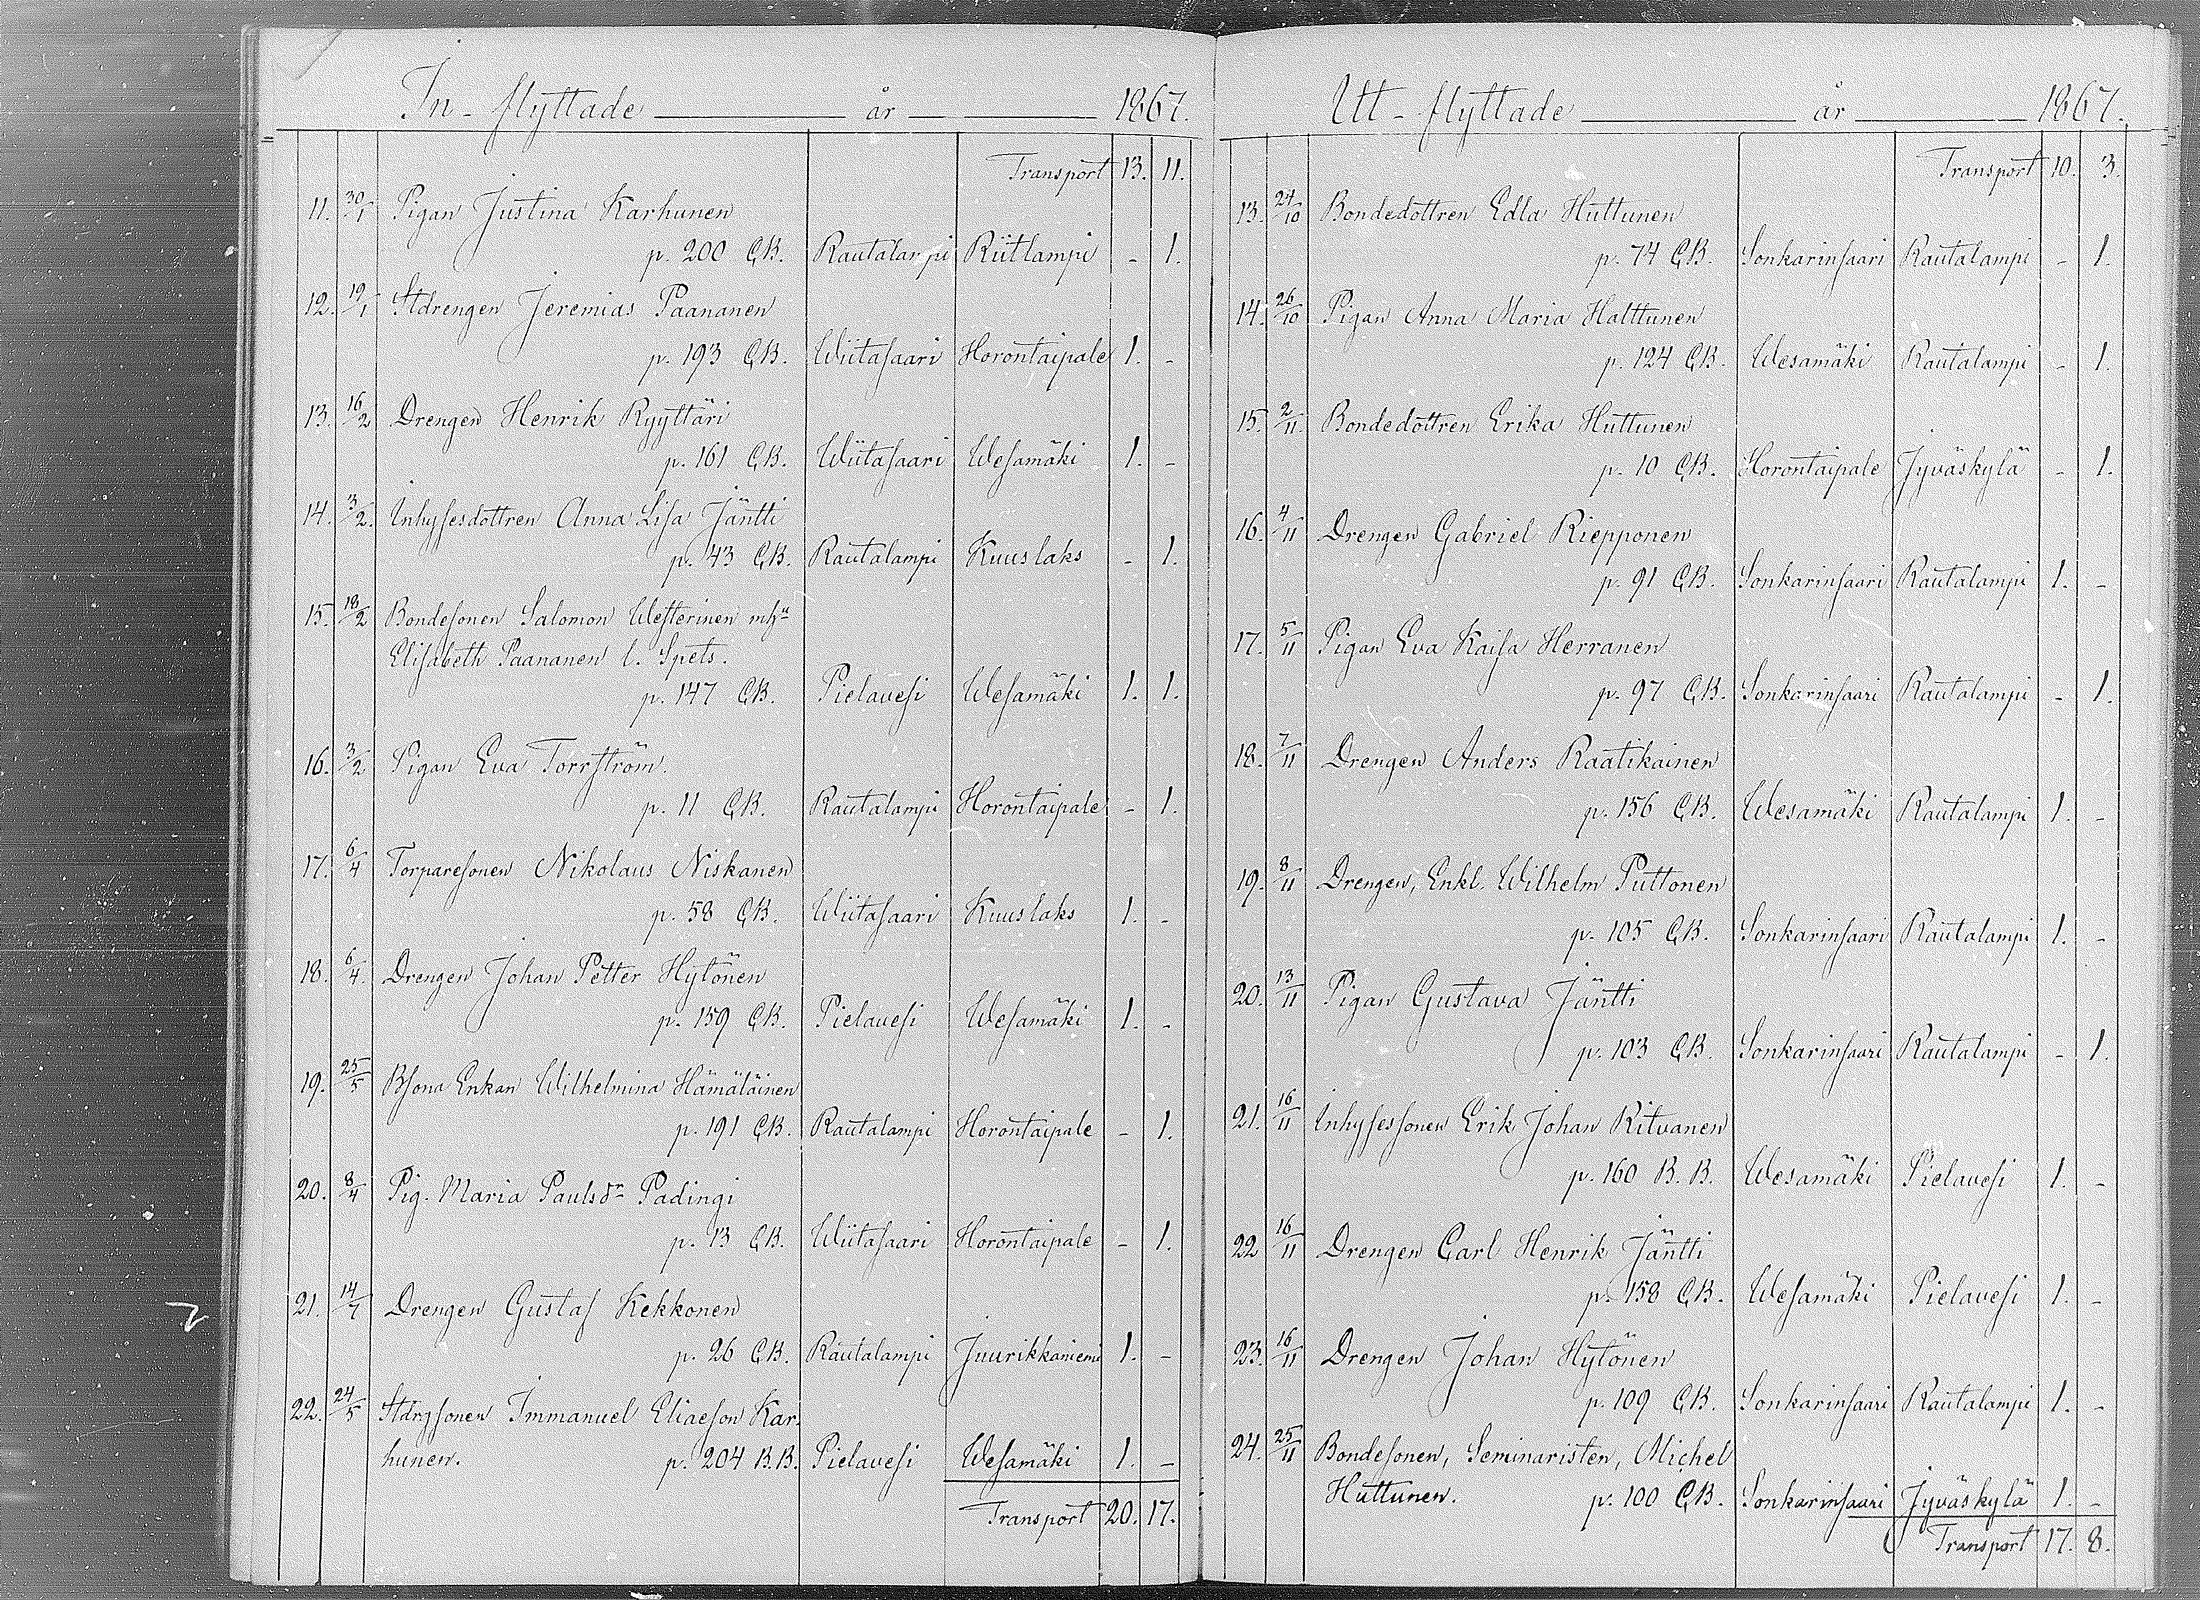 In-flyttade år 1867.
Transport 13. 11.
11. 30/1 Pigan Justina Karhunen
p. 200 C.B. Rautalampi Riitlampi - 1.
12. 19/1 Stdrengen Jeremias Paananen
p. 193 C.B. Wiitasaari Horontaipale 1. -
13. 16/2 Drengen Henrik Ryyttäri
p. 161 C.B. Wiitasaari Wesamäki 1. -
14. 3/2. Inhysesdottren Anna Lisa Jäntti
p. 43 C.B. Rautalampi Kuuslaks - 1.
15. 18/2 Bondesonen Salomon Westerinen mh
Elisabeth Paananen l. Spets.
p. 147 C.B. Pielavesi Wesamäki 1. 1.
16. 3/2 Pigan Eva Torrström.
p. 11 C.B. Rautalampi Horontaipale - 1.
17. 6/4 Torparesonen Nikolaus Niskanen
p. 58 C.B. Wiitasaari Kuuslaks 1. -
18. 6/4. Drengen Johan Petter Hytönen
p. 159 C.B. Pielavesi Wesamäki 1. -
19. 25/5 Bsona Enkan Wilhelmina Hämäläinen
p. 191 C.B. Rautalampi Horontaipale - 1.
20. 8/4 Pig. Maria Paulsdr Padingi
p. 13 C.B. Wiitasaari Horontaipale - 1.
21. 14/7 Drengen Gustaf Kekkonen
p. 26 C.B. Rautalampi Juurikkaniemi 1. -
22. 24/5 Stdrgsonen Immanuel Eliaeson Kar-
hunen. p. 204 B.B. Pielavesi Wesamäki 1. -
Transport 20. 17.
Ut-flyttade år 1867.
Transport 10. 3.
13. 24/10 Bondedottren Edla Huttunen
p. 74 C.B. Sonkarinsaari Rautalampi - 1.
14. 26/10 Pigan Anna Maria Halttunen
p. 124 C.B. Wesamäki Rautalampi - 1.
15. 2/11. Bondedottren Erika Huttunen
p. 10 C.B. Horontaipale Jyväskylä - 1.
16. 4/11 Drengen Gabriel Riepponen
p. 91 C.B. Sonkarinsaari Rautalampi 1. -
17. 5/11 Pigan Eva Kaisa Herranen
p. 97 C.B. Sonkarinsaari Rautalampi - 1.
18. 7/11 Drengen Anders Raatikainen
p. 156 C.B. Wesamäki Rautalampi 1. -
19. 8/11 Drengen, Enkl. Wilhelm Puttonen
p. 105 C.B. Sonkarinsaari Rautalampi 1. -
20. 13/11 Pigan Gustava Jäntti
p. 103 C.B. Sonkarinsaari Rautalampi - 1.
21. 16/11 Inhysessonen Erik Johan Ritvanen
p. 160 B.B. Wesamäki Pielavesi 1. -
22 16/11 Drengen Carl Henrik Jäntti
p. 158 C.B. Wesamäki Pielavesi 1. -
23. 16/11 Drengen Johan Hytönen
p. 109 C.B. Sonkarinsaari Rautalampi 1. -
24. 25/11 Bondesonen, Seminaristen, Michel
Huttunen. p. 100 C.B. Sonkarinsaari Jyväskylä 1. -
Transport 17. 8.